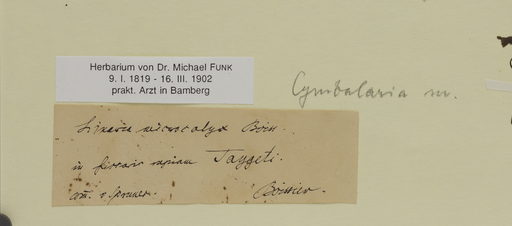 Herbarium von Dr. Michael FUNK
9. I. 1819 - 16. III. 1902
prakt. Arzt in Bamberg
Cymbalaria m.
Linaria microcalyx Boiss.
in Taygeti.
Boissier.